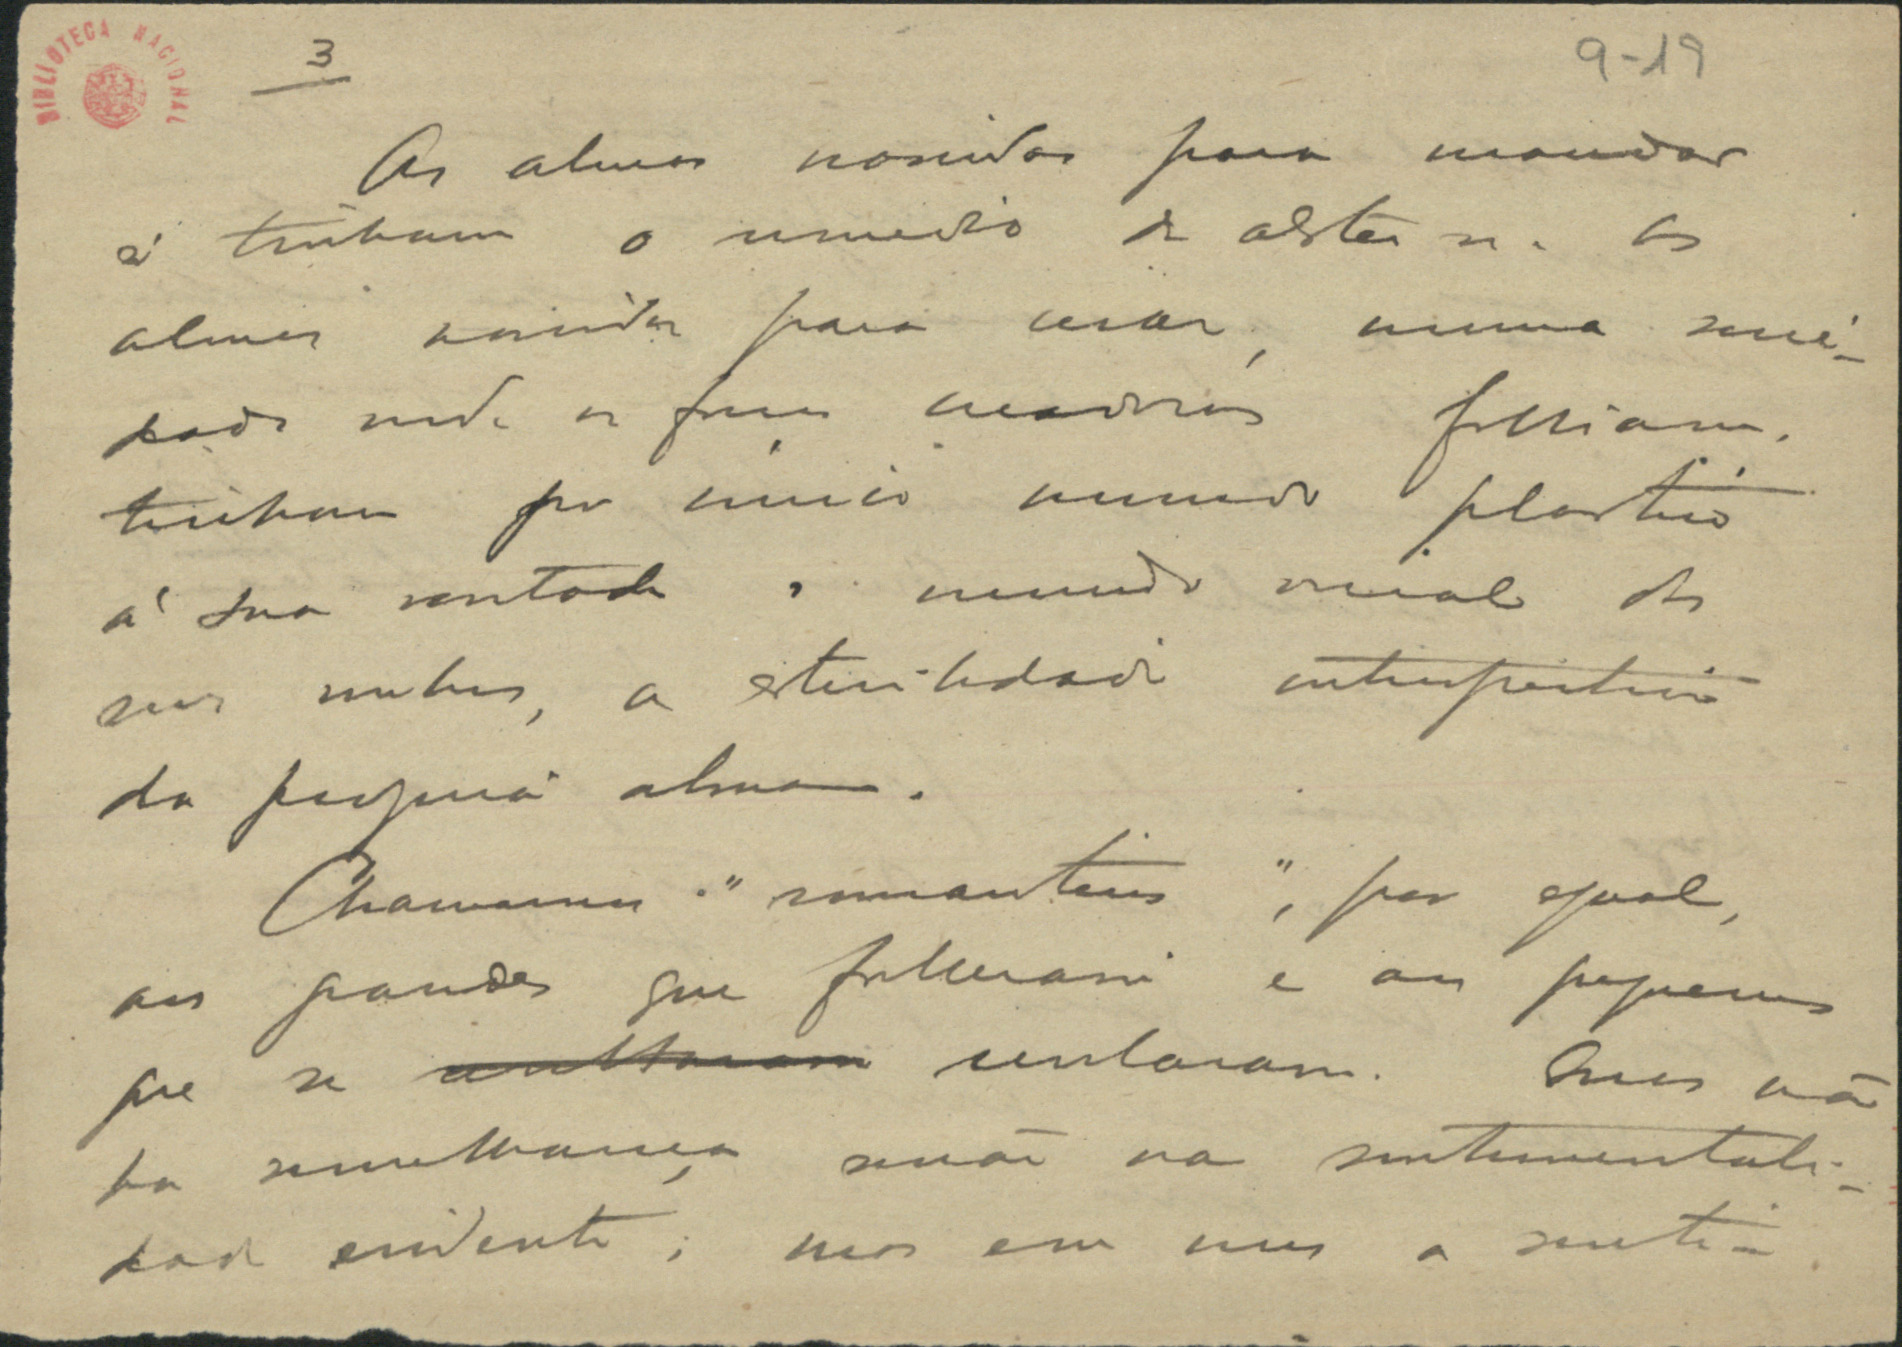 BIBLIOTECA NACIONAL
3
9-19
As almas nascidas para mandar
só tinham o remedio de abster-se. As
almas nascidas para crear, numa socie-
dade onde as forças creadoras falliam,
tinham por unico mundo plastico
á sua vontade o mundo social dos
seus sonhos, a esterilidade introspectiva
da propria alma.
Chamamos "romanticos", por egual,
aos grandes que falleram e aos pequenos
que se revelaram. Mas não
ha semelhança senão na sentimentali-
dade evidente; mas em uns a senti-